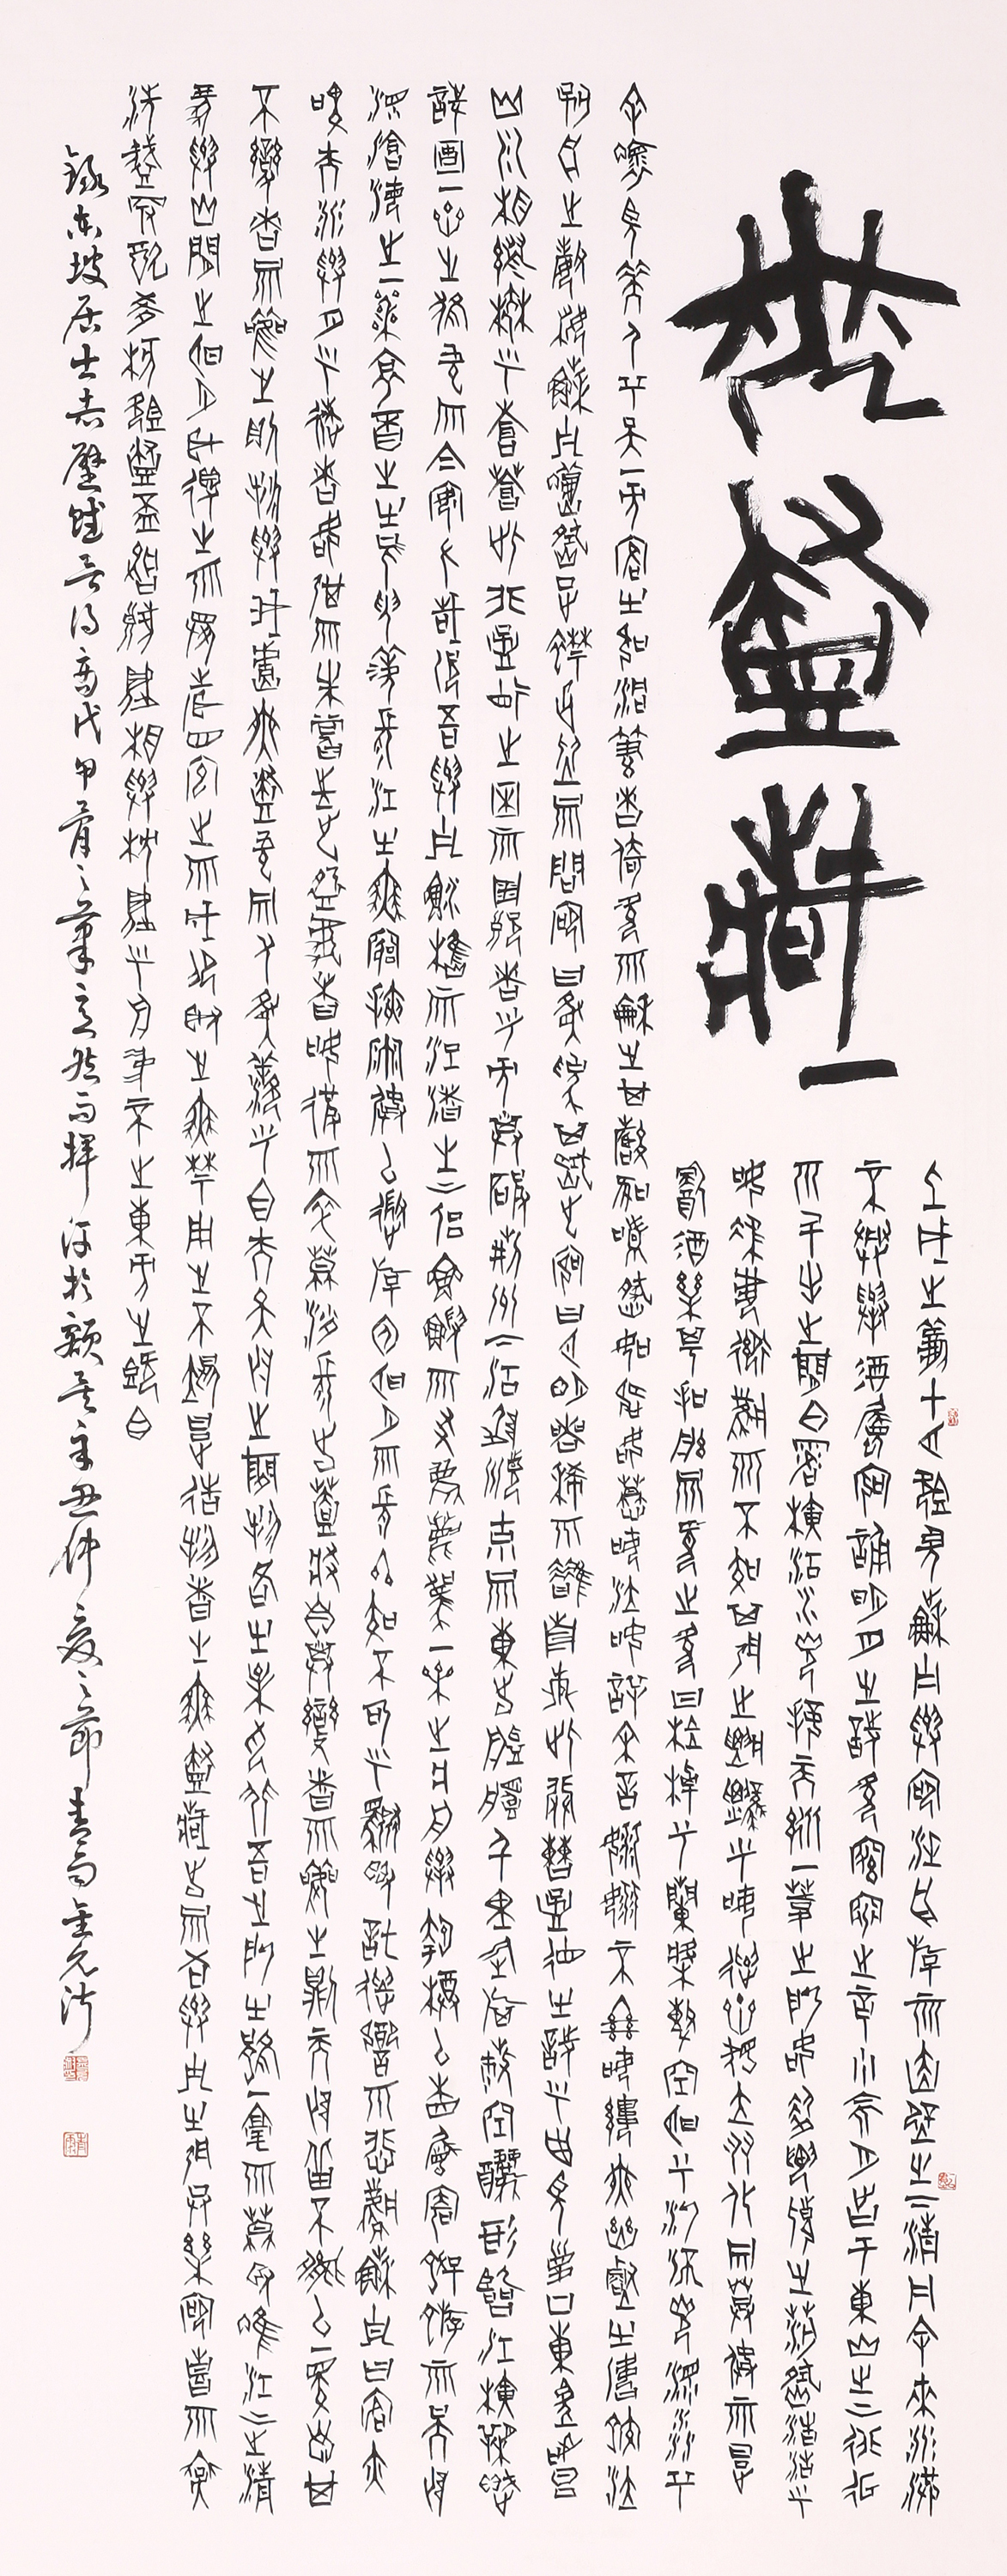 無盡藏
壬戌之秋七月既望蘇子與客泛舟而遊赤壁之下清風徐來水波
不興舉酒屬客誦明月之詩歌窈窕之章少焉月出于東山之上徘徊
于斗牛之間白露橫江水光接天縱一葦之所如凌萬頃之茫然浩浩乎
如馮虛御風而不知其所止飄飄乎如遺世獨立羽化而登僊于是
飲酒樂甚扣舷而歌之歌曰桂棹兮蘭槳擊空明兮泝流光渺渺兮
余懷望美人兮天一方客有吹洞簫者倚歌而和之其聲嗚嗚然如怨如慕如泣如訴余音嫋嫋不絕如縷舞幽壑之潛蛟泣
孤舟之嫠婦蘇子愀然正襟危坐而問客曰何為其然也客曰月明星稀烏鵲南飛此非曹孟德之詩乎西望夏口東望武昌
山川相繆鬱乎蒼蒼此非孟德之困于周郎者乎方其破荊州下江陵順流而東也舳艫千里旌旗蔽空釃酒臨江橫槊賦
詩固一世之雄也而今安在哉況吾與子漁樵于江渚之上侶魚蝦而友麋鹿駕一葉之扁舟舉匏樽以相屬寄蜉蝣于天地
渺滄海之一粟哀吾生之須臾羨長江之無窮挾飛仙以遨遊抱明月而長終知不可乎驟得託遺響于悲風蘇子曰客亦
知夫水與月乎逝者如斯而未嘗往也盈虛者如彼而卒莫消長也蓋將自其變者而觀之則天地曾不能以一瞬自其
不變者而觀之則物與我皆無盡也而又何羨乎且夫天地之間物各有主苟非吾之所有雖一毫而莫取惟江上之清
風與山間之明月耳得之而為聲目遇之而成色取之無禁用之不竭是造物者之無盡藏也而吾與子之所共樂客喜而笑
洗盞更酌肴核既盡杯盤狼藉相與枕藉乎舟中不知東方之既白
錄東坡居士赤壁賦吾得商代甲骨之筆意然而揮汗於額矣辛丑仲夏之節